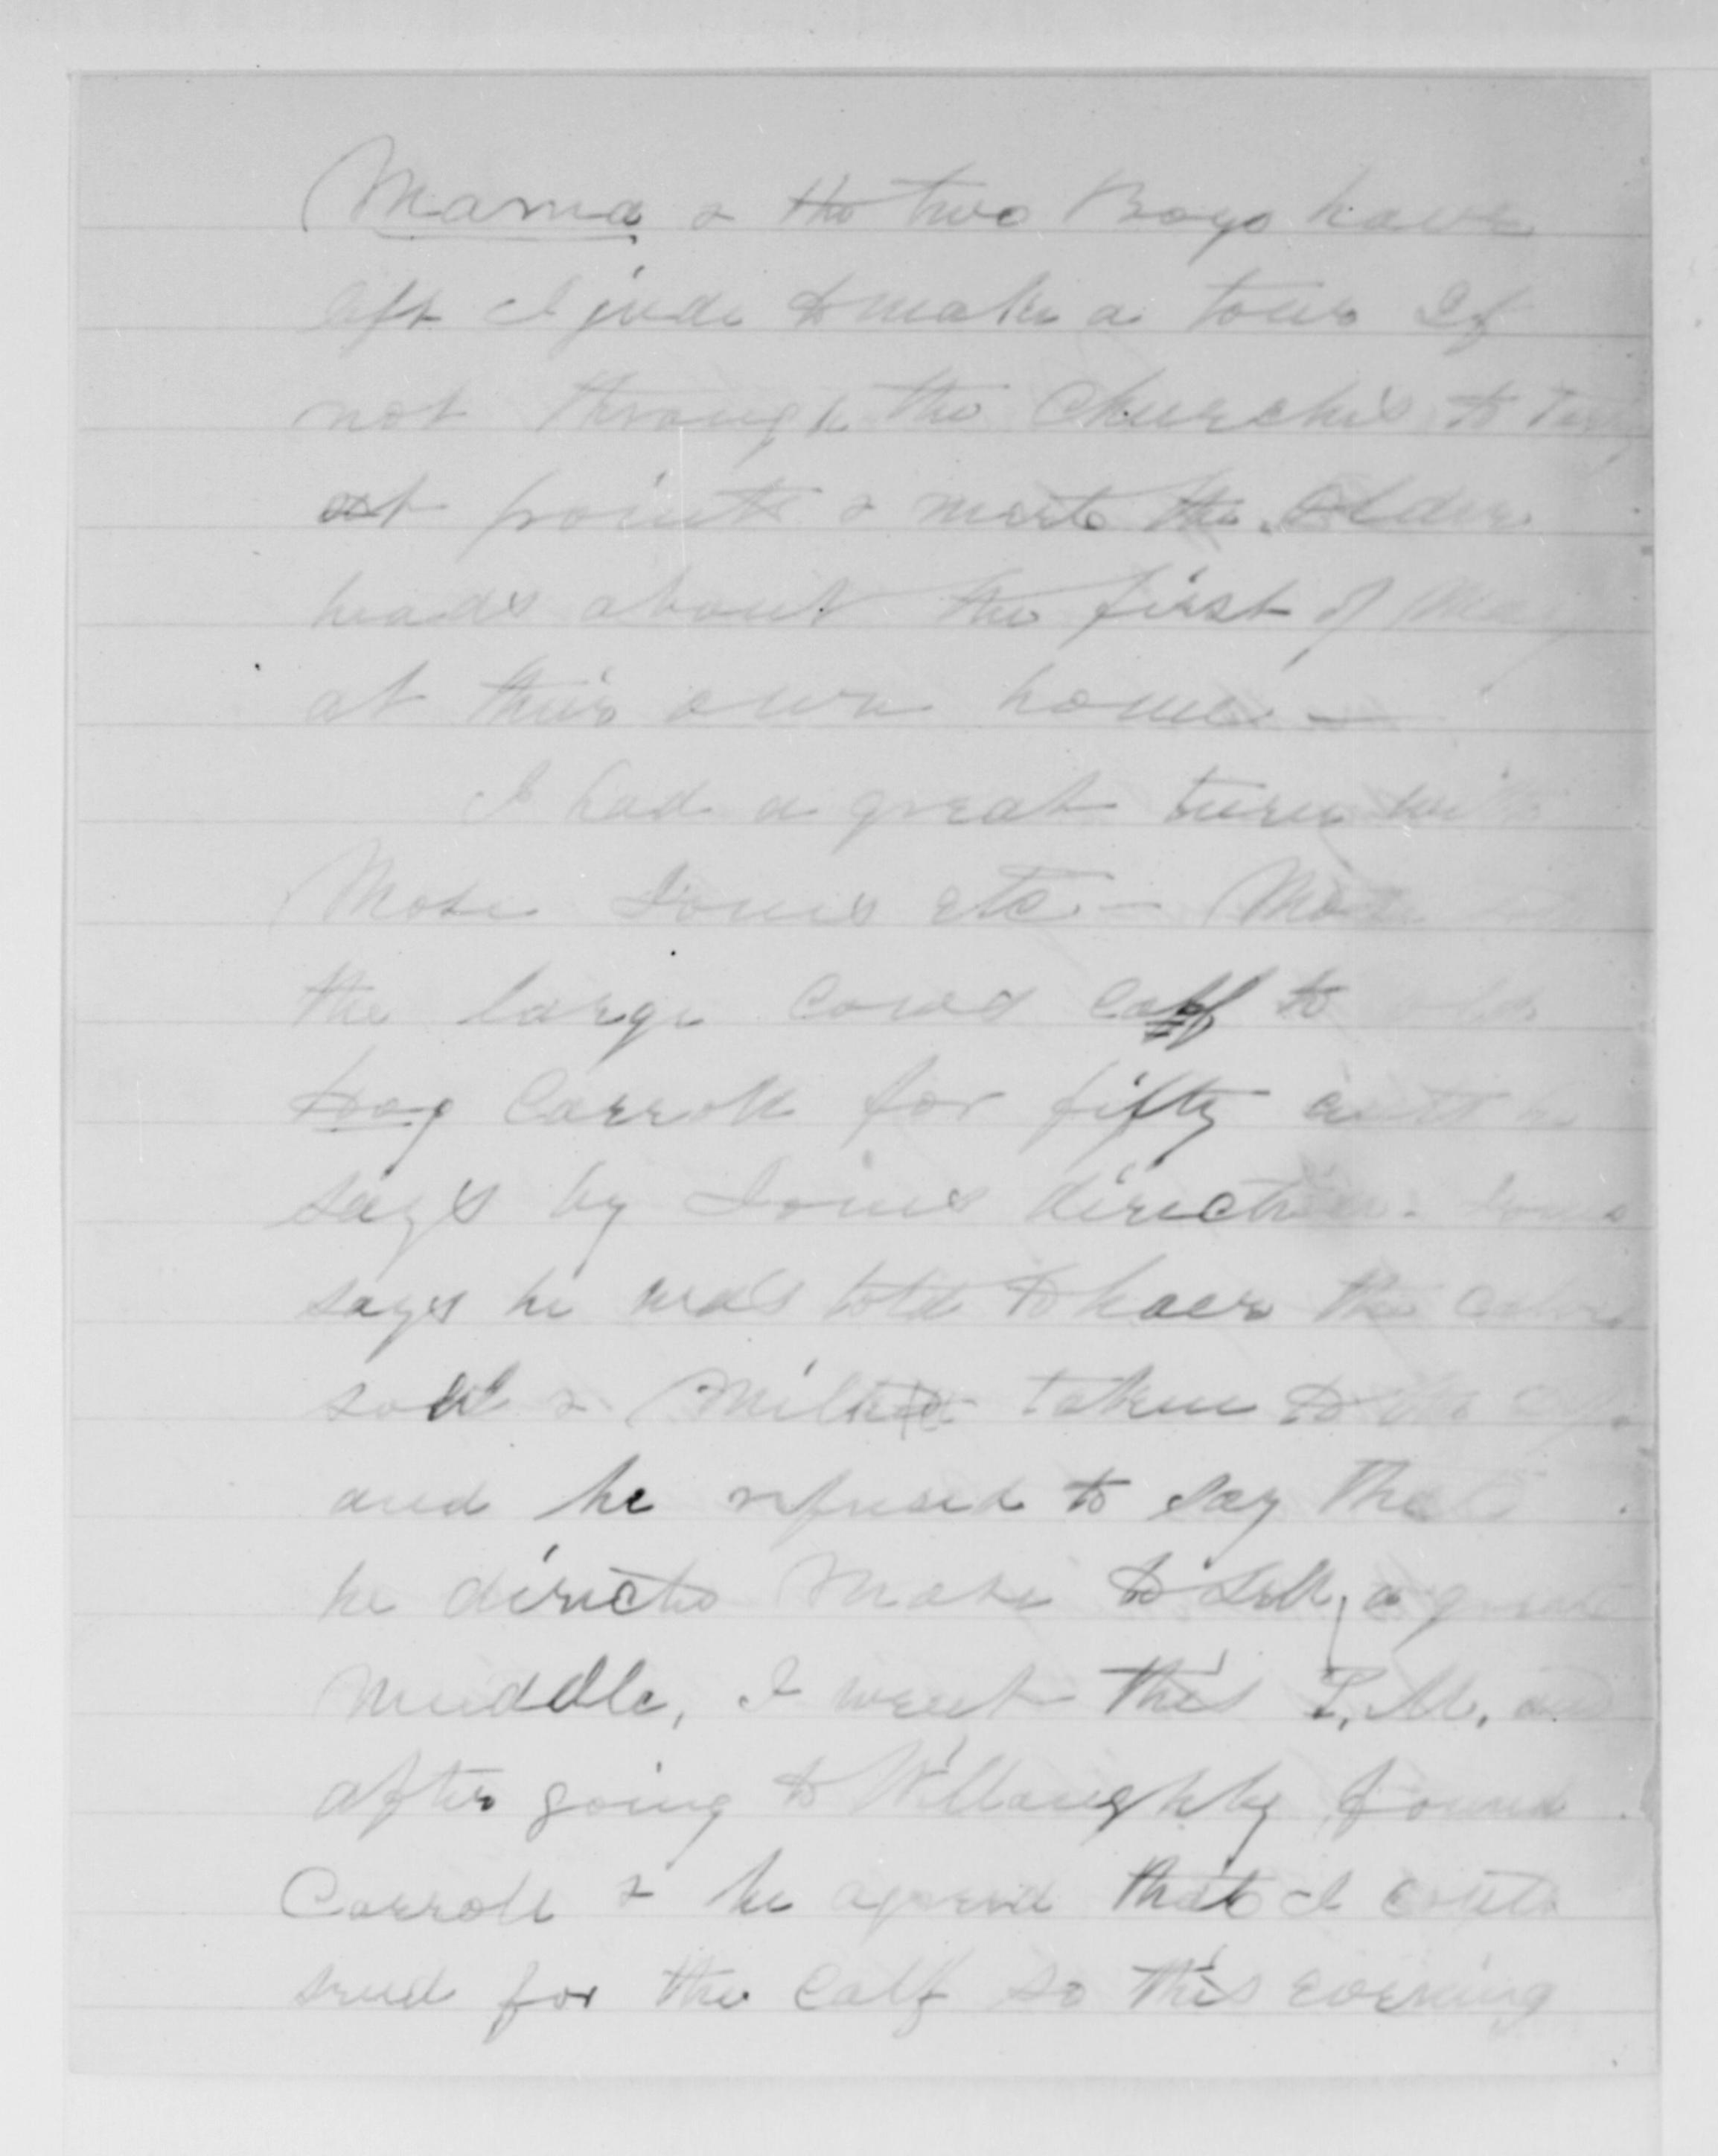 Mama & the two Boys have
left I jude to make a tour If
not through the Churches to
at points & meet the Older
heads about the first of May
at their own home —
I had a great turn
Mose Louis etc — Mose
the large cows calf to old
Doog Carroll for fifty cents he
says by Louis direction. Louis
says he was told to have the calves
sold & Milk taken to the
and he refused to say that
he directed Mose to sell, a great
muddle, I went this P.M. and
after going to Willoughby found
Carroll & he agreed that I could
send for the Calf so this evening